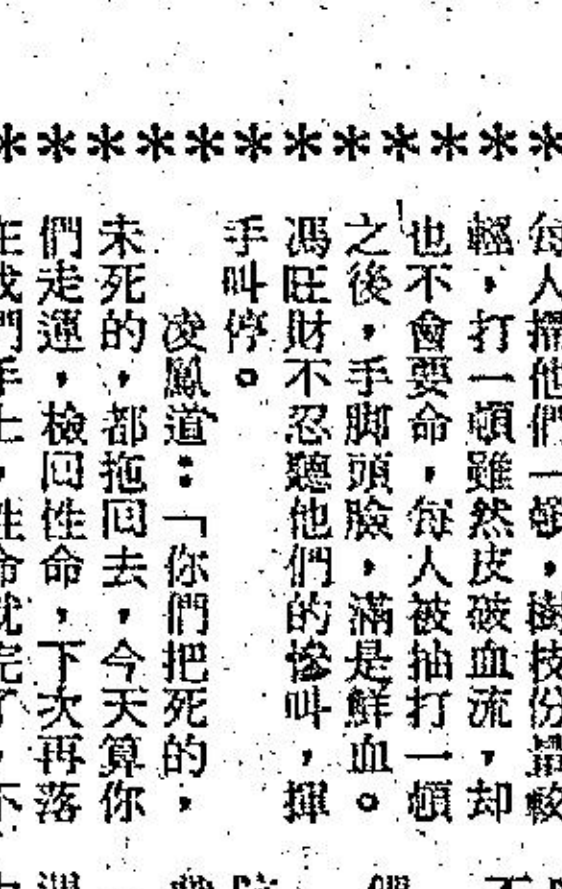 ************
每人揮他們一頓，樹枝份量較
輕，打一頓雖然皮破血流，却
也不會要命，每人被抽打一頓
之後，手脚頭臉，滿是鮮血。
馮旺財不忍聽他們的慘叫，揮
手叫停。
凌鳳道：「你們把死的，
未死的，都拖回去，今天算你
們走運，檢回性命，下次再落
在我們手上，性命就完了，不